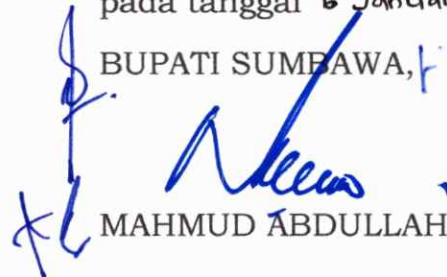 pada tanggal 6 Januar
BUPATI SUMBAWA,
MAHMUD ABDULLAH